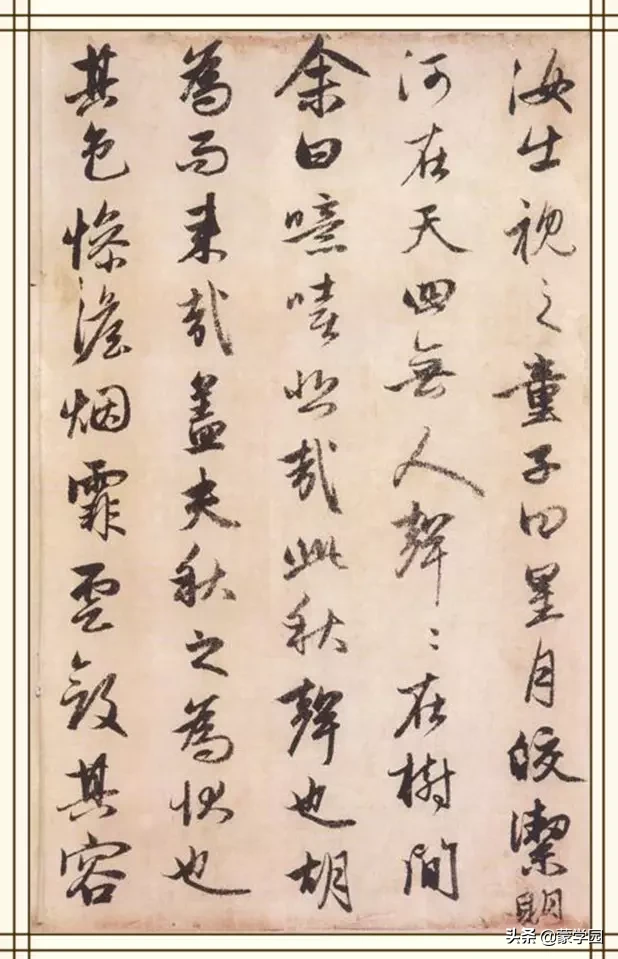 汝出視之童子曰星月皎潔明
河在天四無人聲〻在樹間
余曰噫嘻悲哉此秋聲也胡
為而来哉蓋夫秋之為狀也
其色慘澹烟霏雲斂其容
头条 @蒙学园